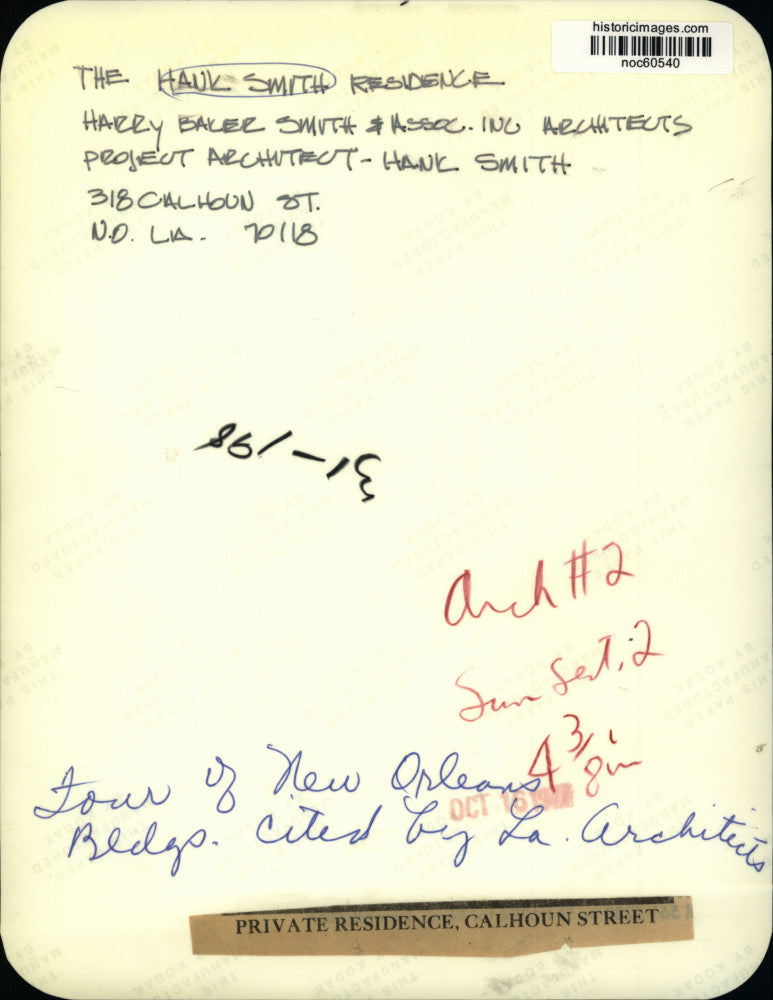 historicimages.com
noc60540
THE HANK SMITH RESIDENCE
HARRY BAKER SMITH & ASSOC. INC ARCHITECTS
PROJECT ARCHITECT - HANK SMITH
318 CALHOUN ST.
N.O. LA. 70118
Arch #2
Sun Sect. 2
4 3/8 in
Tour of New Orleans
Bldgs. cited by La. Architects
OCT
PRIVATE RESIDENCE, CALHOUN STREET
THIS PAPER
MANUFACTURED
BY KODAK